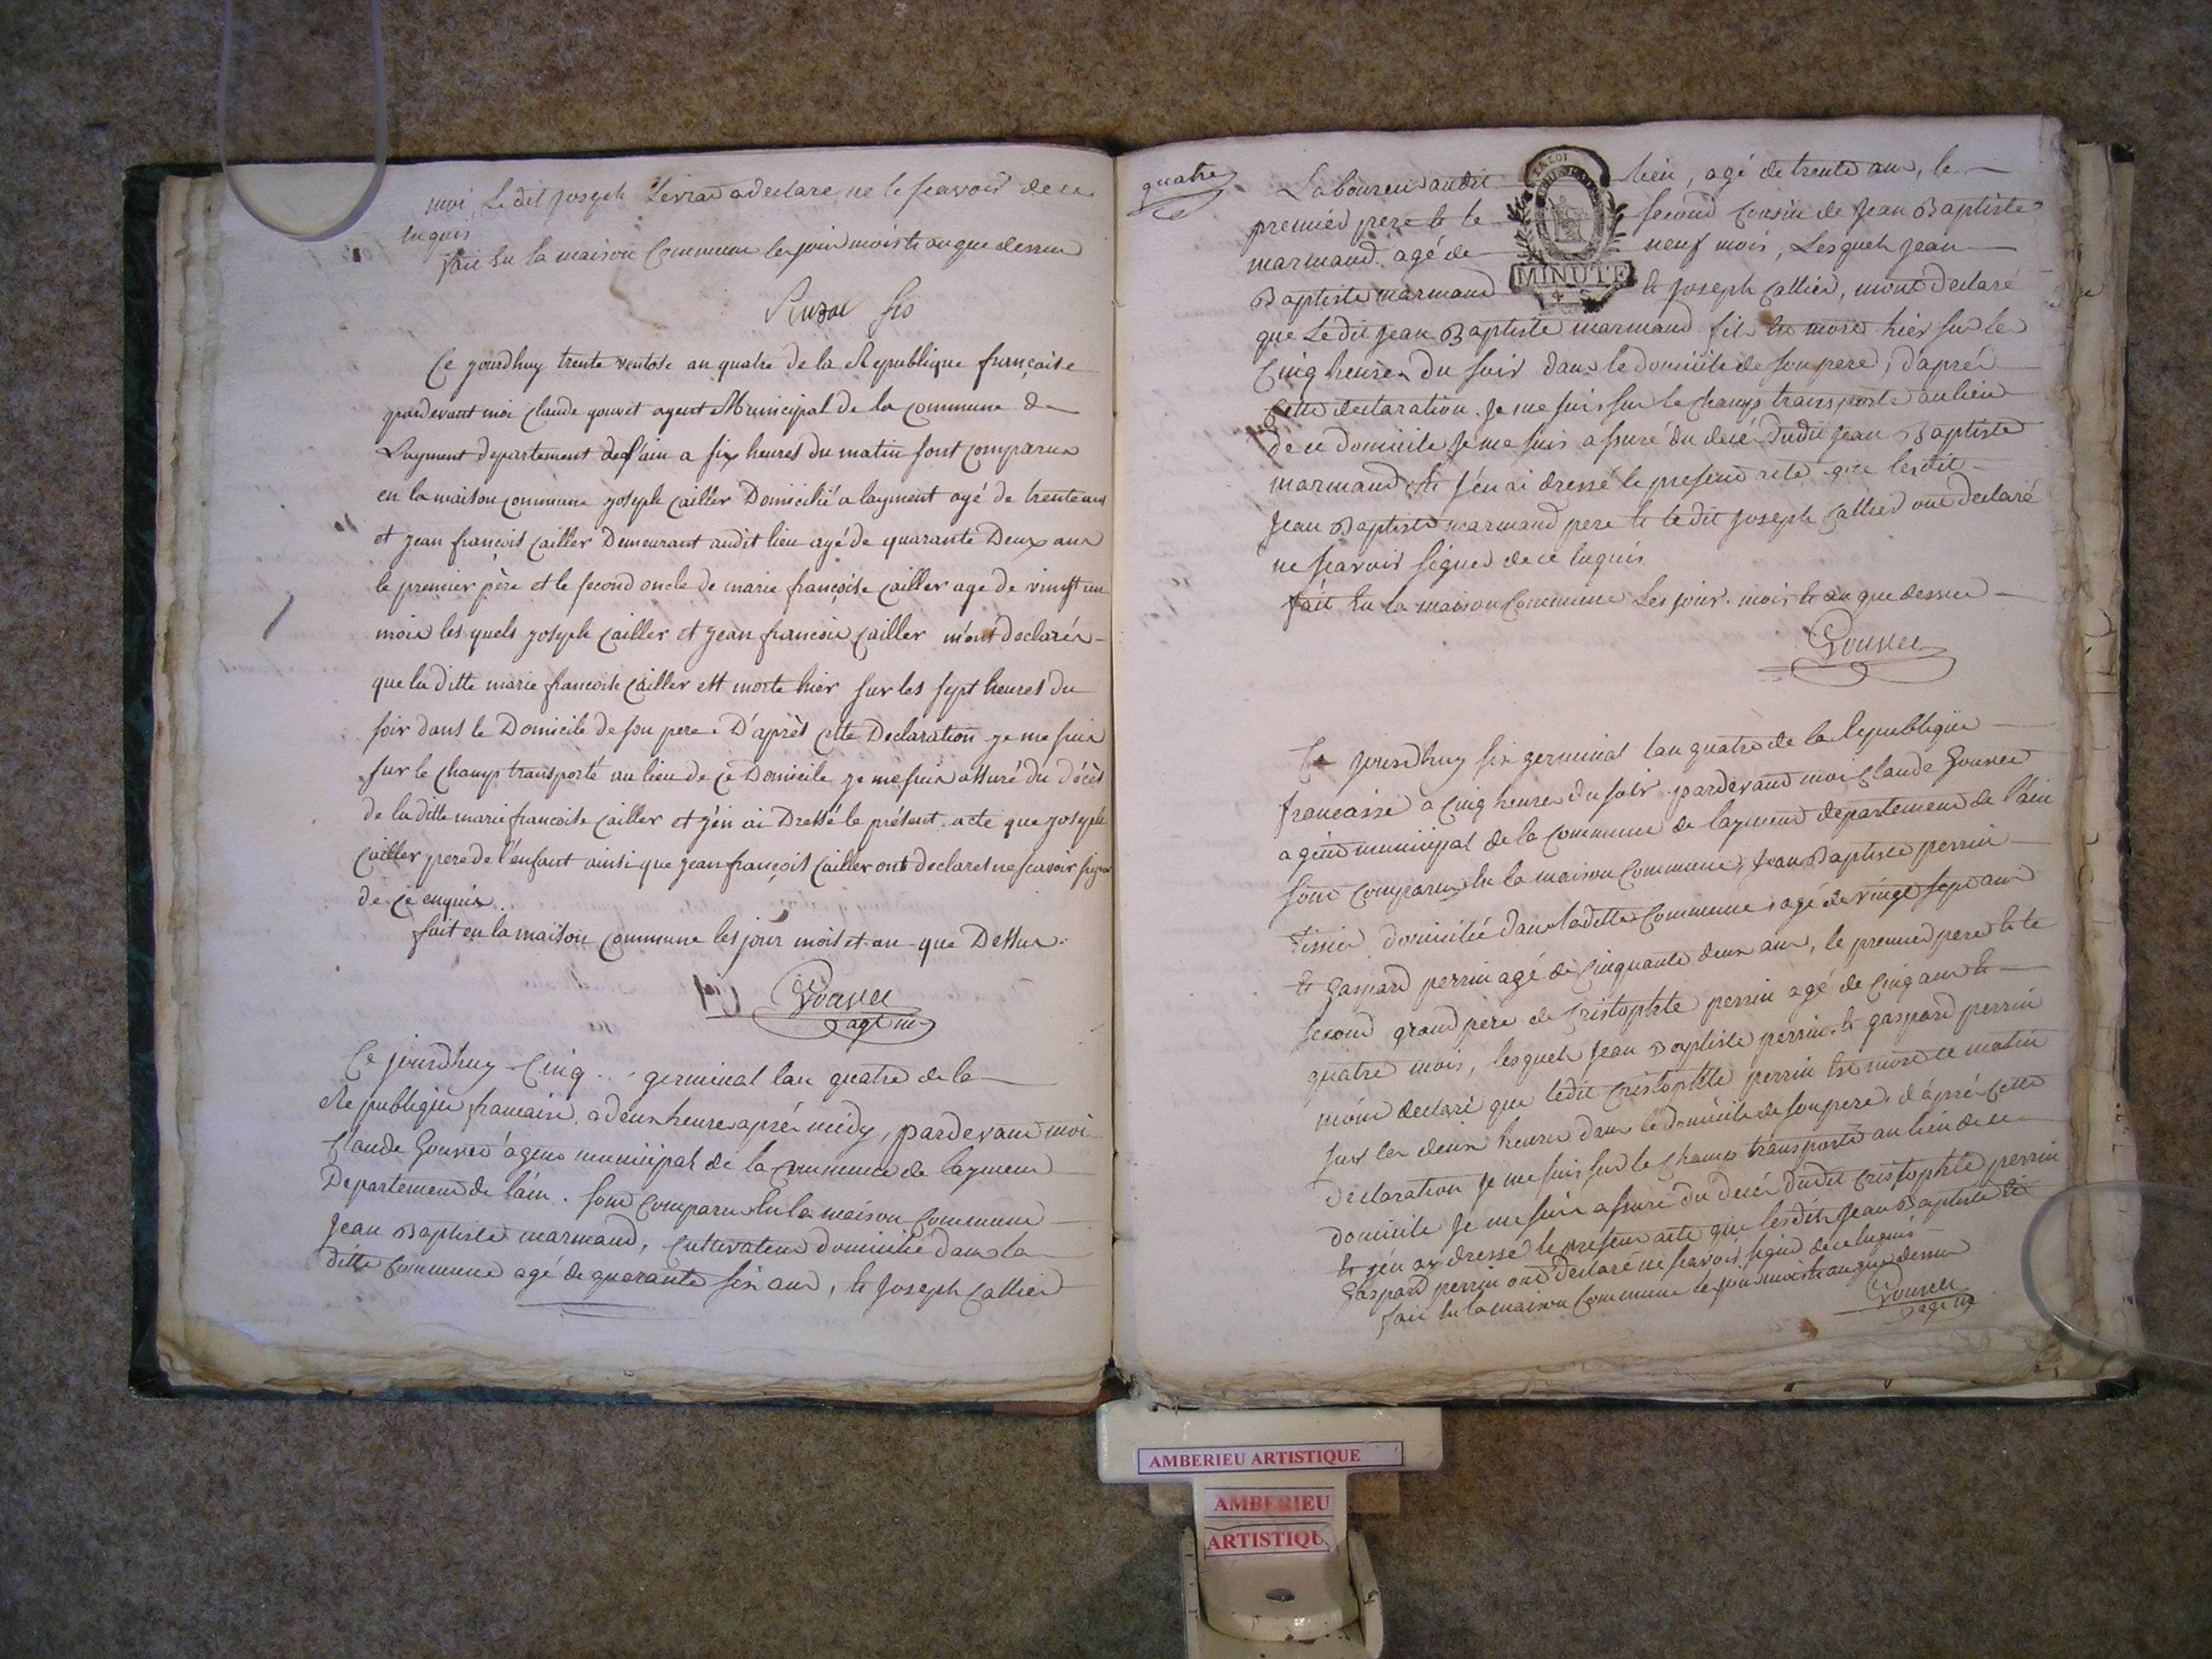 moi, Ledit joseph Levrad a declare ne le scavoir de ce
enquis
fait en la maison Commune les jour mois et an que dessus
Ce jourdhuy trente ventose an quatre de la Republique française
pardevant moi claude gouvet agent Municipal de la commune de
Layment departement de l'ain a six heures du matin sont comparus
en la maison commune joseph cailler Domicilié a layment agé de trente ans
et jean françois cailler Demeurant audit lieu agé de quarante Deux ans
le premier père et le second oncle de marie françoise cailler agé de vingt un
mois les quels joseph cailler et jean francois cailler m'ont declarés
que la ditte marie francoise cailler est morte hier sur les sept heures du
soir dans le Domicile de son pere. D'après cette Declaration je me suis
sur le champ transporté au lieu de ce Domicile je me suis assuré du décès
de la ditte marie francoise cailler et j'en ai Dressé le présent acte que joseph
Cailler pere de l'enfant ainsi que jean françois cailler ont declarés ne scavoir signer
de ce enquis.
fait en la maison commune les jour mois et an que Dessus.
Gouvet
agt m
Ce jourdhuy Cinq germinal lan quatre de la
Republique francaise, a deux heures aprés midy, pardevant moi
Claude Gouvet agent municipal de la Commune de layment
Departement de l'ain. sont comparu en la maison Commune
Jean Baptiste marmand, Cultivateur domicilié dans la
ditte Commune agé de quarante six ans, et Joseph Callier
quatre
Laboureur audit lieu, agé de trente ans, le
LA LOI
premier pere et le second Cousin de Jean Baptiste
marmand agé de neuf mois, Lesquels jean
MINUTE
Baptiste marmand et Joseph Callier, mont declaré
que Ledit Jean Baptiste marmand fils est mort hier sur les
Cinq heures du soir dans le domicile de son pere, d'aprés
Cette declaration. Je me suis sur le Champ transporté au lieu
de ce domicile Je me suis assuré du decé dudit jean Baptiste
marmand, et j'en ai dressé le present acte que lesdit
Jean Baptiste marmand pere et ledit Joseph Callier ont declaré
ne scavoir signer de ce enquis
fait en la maison Commune Les jour. mois et an que dessus
Gouvet
Ce jourdhuy six germinal lan quatre de la Republique
francaise a Cinq heures du soir pardevant moi Claude Gouvet
agent municipal de la Commune de layment departement de l'ain
sont comparu en la maison Commune, Jean Baptiste perrin
Tissier domicilié dans laditte Commune, agé de vingt sept ans
et Gaspard perrin agé de Cinquante deux ans, le premier pere et le
second grand pere de Cristophle perrin agé de Cinq ans et
quatre mois, lesquels Jean Baptiste perrin et gaspard perrin
m'ont declaré que ledit Cristophle perrin est mort ce matin
sur les deux heures dans le domicile de son pere, d'aprés Cette
declaration Je me suis sur le Champ transporté au lieu de ce
domicile Je me suis assuré du decés dudit Cristophle perrin
et j'en ay dressé le present acte que lesdits Jean Baptiste et
Gaspard perrin ont declaré ne scavoir signer de ce enquis
fait en la maison Commune les jour mois et an que dessus
Gouvet
agt m
AMBERIEU ARTISTIQUE
AMBERIEU
ARTISTIQU